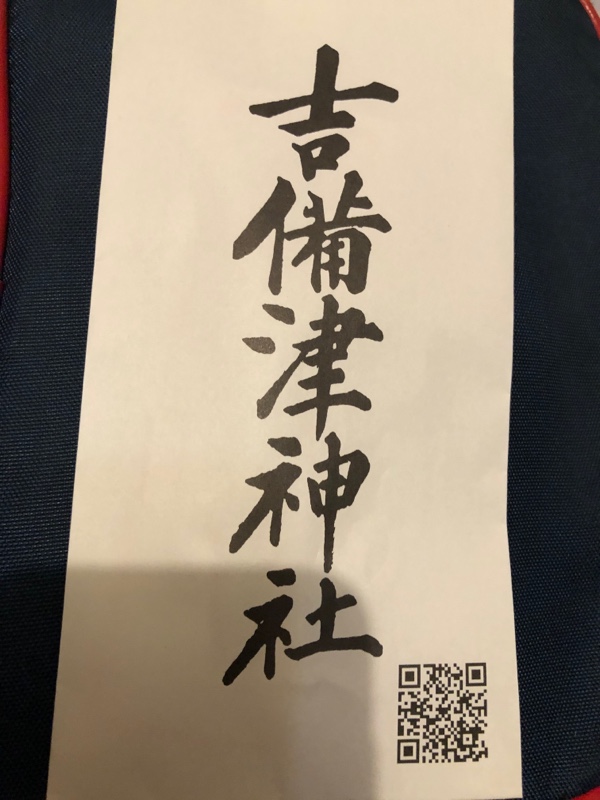 吉備津神社